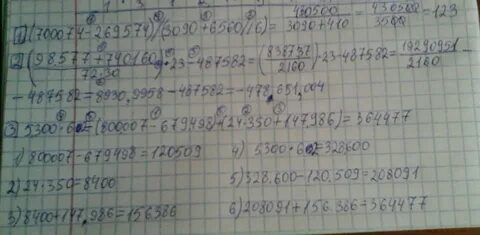 1) (700074-269574):(3090+6560:16)= 430500/3090+410 = 430500/3500 =123
2) (98577+740160/72·30)·23-487582=(838737/2160)·23-487582= 19290951/2160 -
-487582=8930,9958-487582=-478.651,004
3) 5300·62=(800007-679498)+(24·350+147,986)=364477
1) 800007-679498=120509 4) 5300·62=328600
2) 24·350=8400 5) 328.600-120.509=208091
3) 8400+147,986=156386 6) 208091+156.386=364477